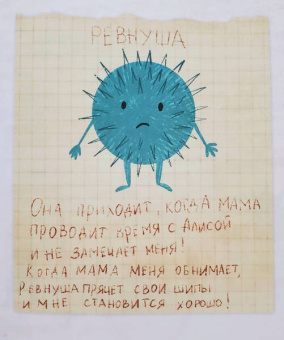 РЕВНУША
ОНА ПРИХОДИТ, КОГДА МАМА
ПРОВОДИТ ВРЕМЯ С АЛИСОЙ
И НЕ ЗАМЕЧАЕТ МЕНЯ!
КОГДА МАМА МЕНЯ ОБНИМАЕТ,
РЕВНУША ПРЯЧЕТ СВОИ ШИПЫ
И МНЕ СТАНОВИТСЯ ХОРОШО!